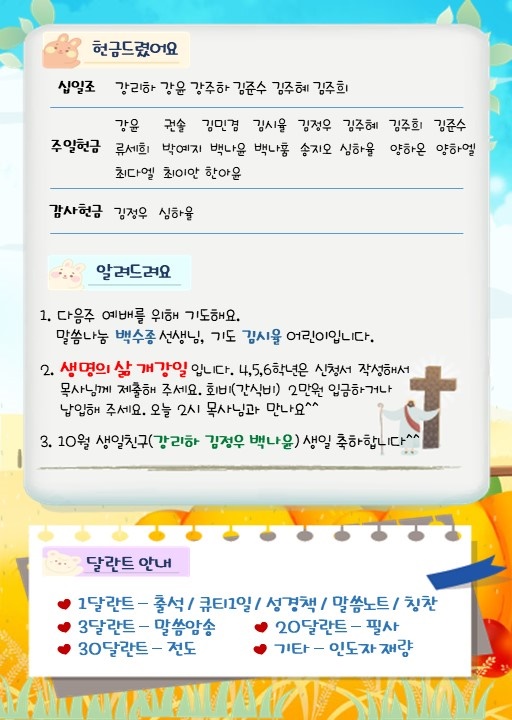 헌금드렸어요
십일조 강리하 강윤 강주하 김준수 김주혜 김주희
주일헌금 강윤 권솔 김민겸 김시율 김정우 김주혜 김주희 김준수
류세희 박예지 백나윤 백나홍 송지오 심하율 양하온 양하엘
최다엘 최이안 한아윤
감사헌금 김정우 심하율
알려드려요
1. 다음주 예배를 위해 기도해요.
말씀나눔 백수종선생님, 기도 김시율 어린이입니다.
2. 생명의 삶 개강일 입니다. 4,5,6학년은 신청서 작성해서
목사님께 제출해 주세요. 회비(간식비) 2만원 입금하거나
납입해 주세요. 오늘 2시 목사님과 만나요^^
3. 10월 생일친구(강리하 김정우 백나윤) 생일 축하합니다^^
달란트 안내
1달란트 – 출석 / 큐티1일 / 성경책 / 말씀노트 / 칭찬
3달란트 – 말씀암송 20달란트 – 필사
30달란트 – 전도 기타 – 인도자 재량